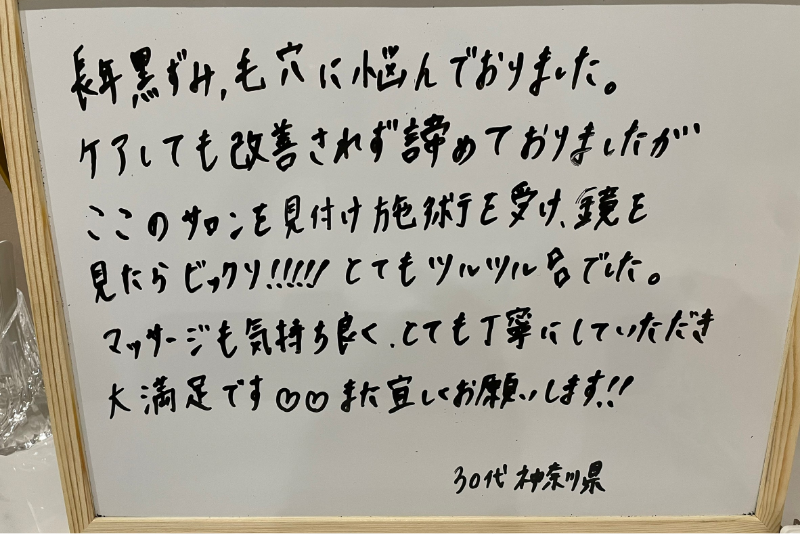 長年黒ずみ,毛穴に悩んでおりました。
ケアしても改善されず諦めておりましたが
ここのサロンを見付け施術を受け、鏡を
見たらビックリ!!!!! とてもツルツルでした。
マッサージも気持ち良く、とても丁寧にしていただき
大満足です♡♡また宜しくお願いします!!
30代 神奈川県